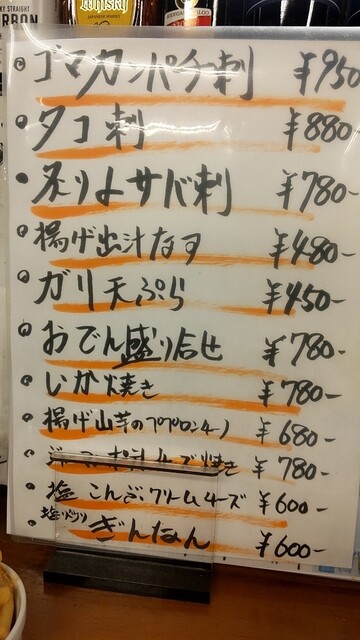 STRAIGHT
Whisky
ゴマカンパチ刺 ¥950
タコ刺 ¥880-
炙りよサバ刺 ¥780-
揚げ出汁なす ¥480-
ガリ天ぷら ¥450-
おでん盛り合せ ¥780-
いか焼き ¥780-
揚げ山芋のペペロンチーノ ¥680-
チーズ焼き ¥780-
塩こんぶクリームチーズ ¥600-
ぎんなん ¥600-